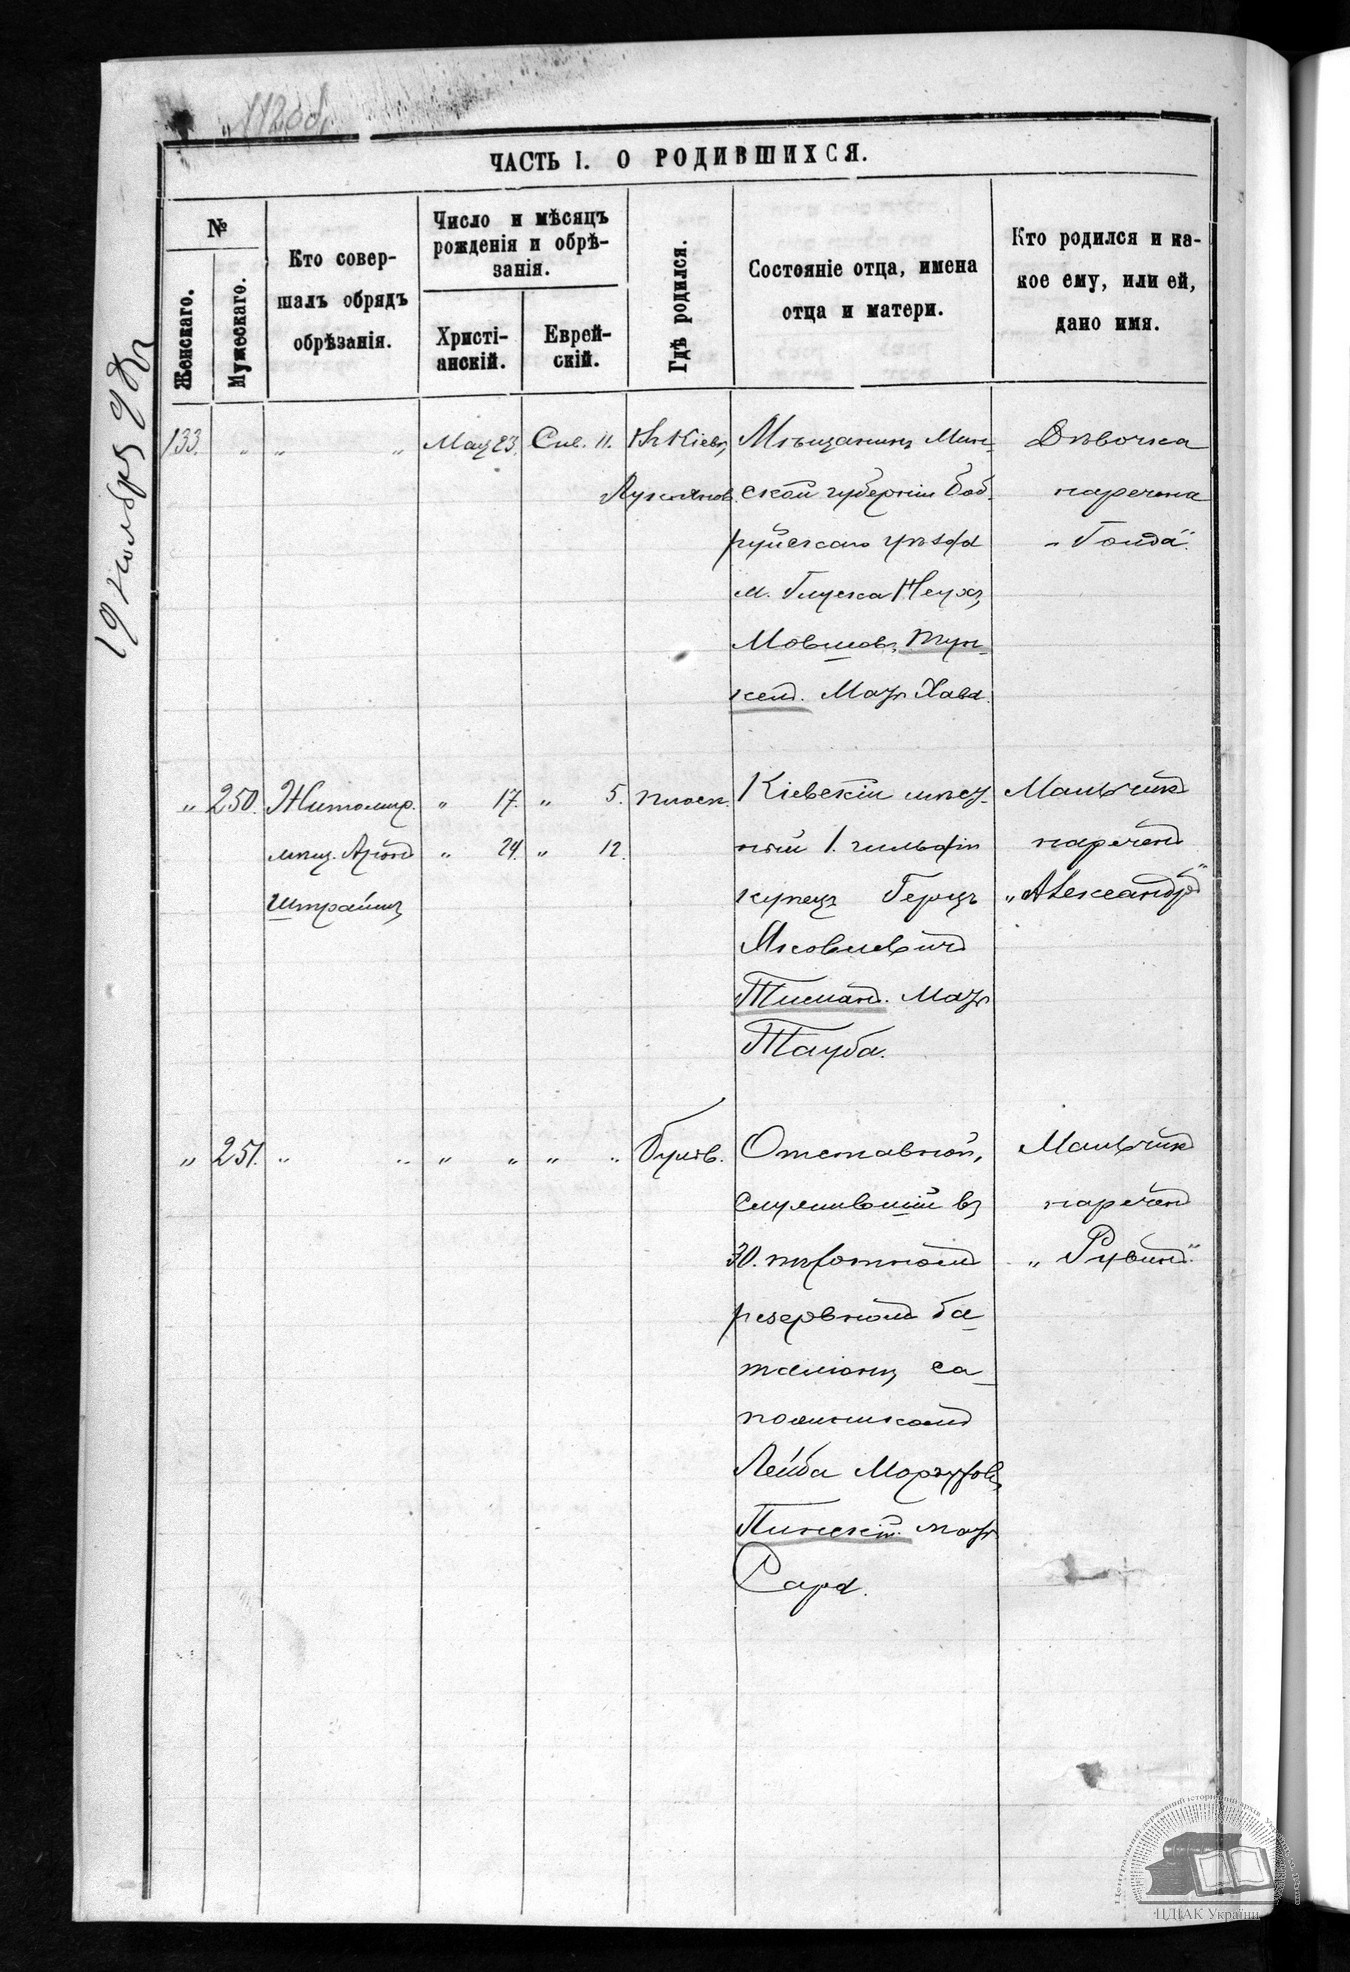 112об.
ЧАСТЬ I. О РОДИВШИХСЯ.
№
Женскаго.
Мужескаго.
Кто совер-
шалъ обрядъ
обрѣзанія.
Число и мѣсяцъ
рожденія и обрѣ-
занія.
Христі-
анскій.
Еврей-
скій.
Гдѣ родился.
Состояніе отца, имена
отца и матери.
Кто родился и ка-
кое ему, или ей,
дано имя.
133. „ „ „ Мая 23. Сив. 11. Въ Кіевѣ,
Лукьянов.
Мѣщанинъ Мин-
ской губерніи Боб-
руйскаго уѣзда
м. Глуска Неухъ
Мовшовъ Тун-
кель. Мать Хава.
Дѣвочка
наречена
„Голда“.
„ 250. Житомир.
мѣщ. Аронъ
Штраймъ
„ 17. „ 5.
„ 24. „ 12.
Плоск.
Кіевскій мѣст-
ный 1. гильдіи
купецъ Герцъ
Яковлевичъ
Тисманъ. Мать
Тауба.
Мальчикъ
нареченъ
„Александръ“
„ 251. „ „ „ „ „ „ Бульв.
Отставной,
служившій въ
30. пѣхотномъ
резервномъ ба-
таліонѣ са-
пожникомъ
Лейба Мордуховъ
Пинскій. мать
Сара.
Мальчикъ
нареченъ
„Рувинъ“.
19 ноября
ЦДІАК України